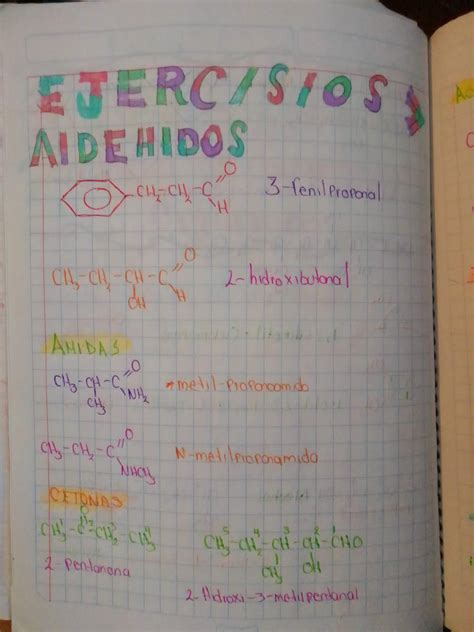 EJERCISIOS
AlDEHIDOS
CH₂-CH₂-C O H 3-fenilpropanal
CH₃-CH₂-CH-C O H 2-hidroxibutanal
OH
AMIDAS
CH₃-CH-C O NH₂ metil-propanamida
CH₃
CH₃-CH₂-C O NHCH₃ N-metilpropanamida
CETONAS
CH₃-C-CH₂-CH₃ CH₃-CH₂-CH-CH-CHO
5 4 3 2 1
CH₃ OH
2-pentanona
2-Hidroxi-3-metilpentanal